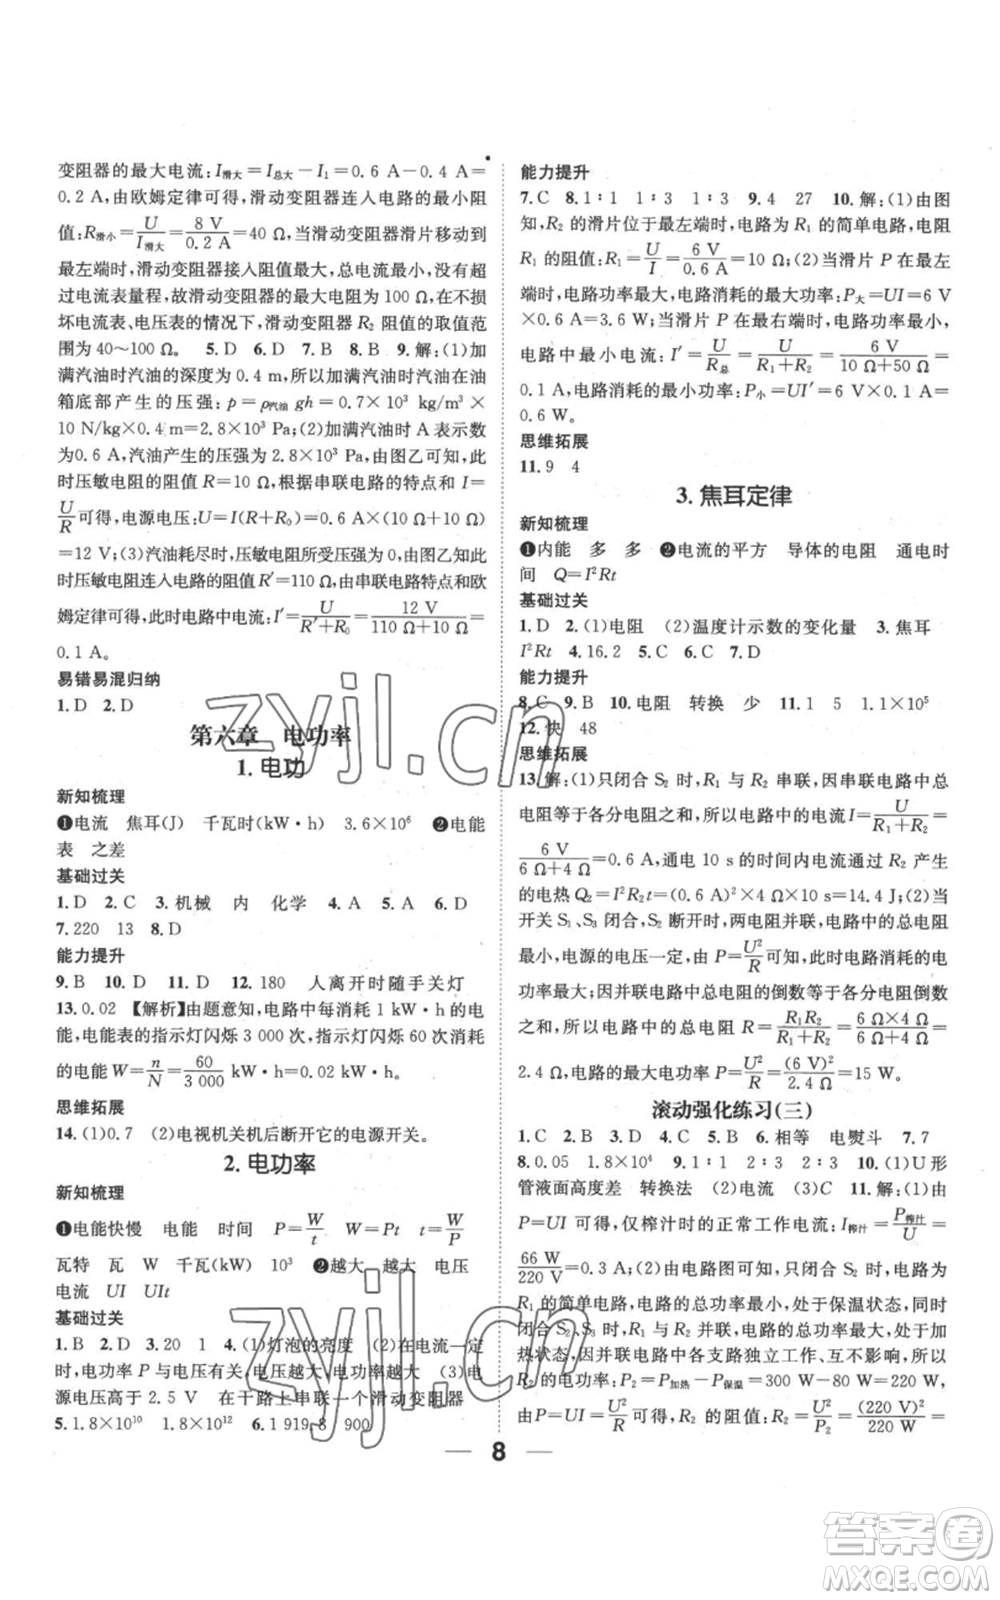 变阻器的最大电流:I滑大=I总大-I₁=0.6 A-0.4 A=
0.2 A,由欧姆定律可得,滑动变阻器连入电路的最小阻
值:R滑小=U/I滑大=8 V/0.2 A=40 Ω,当滑动变阻器滑片移动到
最左端时,滑动变阻器接入阻值最大,总电流最小,没有超
过电流表量程,故滑动变阻器的最大电阻为 100 Ω,在不损
坏电流表、电压表的情况下,滑动变阻器 R₂ 阻值的取值范
围为 40~100 Ω。 5.D 6.D 7.B 8.B 9.解:(1)加
满汽油时汽油的深度为 0.4 m,所以加满汽油时汽油在油
箱底部产生的压强:p=ρ汽油 gh=0.7×10³ kg/m³×
10 N/kg×0.4 m=2.8×10³ Pa;(2)加满汽油时 A 表示数
为 0.6 A,汽油产生的压强为 2.8×10³ Pa,由图乙可知,此
时压敏电阻的阻值 R=10 Ω,根据串联电路的特点和 I=
U/R可得,电源电压:U=I(R+R₀)=0.6 A×(10 Ω+10 Ω)
=12 V;(3)汽油耗尽时,压敏电阻所受压强为 0,由图乙知
此时压敏电阻连入电路的阻值 R′=110 Ω,由串联电路特点和欧
姆定律可得,此时电路中电流:I′=U/(R′+R₀)=12 V/(110 Ω+10 Ω)=
0.1 A。
易错易混归纳
1.D 2.D
第六章 电功率
1. 电功
新知梳理
❶电流 焦耳(J) 千瓦时(kW·h) 3.6×10⁶ ❷电能
表 之差
基础过关
1.D 2.C 3.机械 内 化学 4.A 5.A 6.D
7.220 13 8.D
能力提升
9.B 10.D 11.D 12.180 人离开时随手关灯
13.0.02 【解析】由题意知,电路中每消耗 1 kW·h 的电
能,电能表的指示灯闪烁 3 000 次,指示灯闪烁 60 次消耗
的电能 W=n/N=60/3 000 kW·h=0.02 kW·h。
思维拓展
14.(1)0.7 (2)电视机关机后断开它的电源开关。
2. 电功率
新知梳理
❶电能快慢 电能 时间 P=W/t W=Pt t=W/P
瓦特 瓦 W 千瓦(kW) 10³ ❷越大 越大 电压
电流 UI UIt
基础过关
1.B 2.D 3.20 1 4.(1)灯泡的亮度 (2)在电流一定
时,电功率 P 与电压有关,电压越大,电功率越大 (3)电
源电压高于 2.5 V 在干路上串联一个滑动变阻器
5.1.8×10¹⁰ 1.8×10¹² 6.1 919.8 900
能力提升
7.C 8.1∶1 1∶3 1∶3 9.4 27 10.解:(1)由图
知,R₂ 的滑片位于最左端时,电路为 R₁ 的简单电路,电阻
R₁ 的阻值:R₁=U/I=6 V/0.6 A=10 Ω;(2)当滑片 P 在最左
端时,电路功率最大,电路消耗的最大功率:P大=UI=6 V
×0.6 A=3.6 W,当滑片 P 在最右端时,电路功率最小,
电路中最小电流:I′=U/R总=U/(R₁+R₂)=6 V/(10 Ω+50 Ω)=
0.1 A,电路消耗的最小功率:P小=UI′=6 V×0.1 A=
0.6 W。
思维拓展
11.9 4
3. 焦耳定律
新知梳理
❶内能 多 多 ❷电流的平方 导体的电阻 通电时
间 Q=I²Rt
基础过关
1.D 2.(1)电阻 (2)温度计示数的变化量 3.焦耳
I²Rt 4.16.2 5.C 6.C 7.D
能力提升
8.C 9.B 10.电阻 转换 少 11.1 5 1.1×10⁵
12.快 48
思维拓展
13.解:(1)只闭合 S₂ 时,R₁ 与 R₂ 串联,因串联电路中总
电阻等于各分电阻之和,所以,电路中的电流 I=U/(R₁+R₂)=
6 V/(6 Ω+4 Ω)=0.6 A,通电 10 s 的时间内电流通过 R₂ 产生
的电热 Q₂=I²R₂t=(0.6 A)²×4 Ω×10 s=14.4 J;(2)当
开关 S₁、S₃ 闭合,S₂ 断开时,两电阻并联,电路中的总电阻
最小,电源的电压一定,由 P=U²/R可知,此时电路的电
功率最大;因并联电路中总电阻的倒数等于各分电阻倒数
之和,所以,电路中的总电阻 R=R₁R₂/(R₁+R₂)=6 Ω×4 Ω/(6 Ω+4 Ω)=
2.4 Ω,电路的最大电功率 P=U²/R=(6 V)²/2.4 Ω=15 W。
滚动强化练习(三)
1.C 2.A 3.D 4.C 5.B 6.相等 电熨斗 7.7
8.0.05 1.8×10⁴ 9.1∶1 2∶3 10.(1)U 形
管液面高度差 转换法 (2)电流 (3)C 11.解:(1)由
P=UI 可得,仅榨汁时的正常工作电流:I榨汁=P榨汁/U=
66 W/220 V=0.3 A;(2)由电路图可知,只闭合 S₂ 时,电路为
R₁ 的简单电路,电路的总功率最小,处于保温状态,同时
闭合 S₂、S₃ 时,R₁ 与 R₂ 并联,电路的总功率最大,处于加
热状态,因并联电路中各支路独立工作、互不影响,所以
R₂ 的电功率:P₂=P加热-P保温=300 W-80 W=220 W,
由P=UI=U²/R可得,R₂ 的阻值:R₂=U²/P₂=(220 V)²/220 W=
8
zyjl.cn
zyjl.cn
答案圈
MXQE.COM